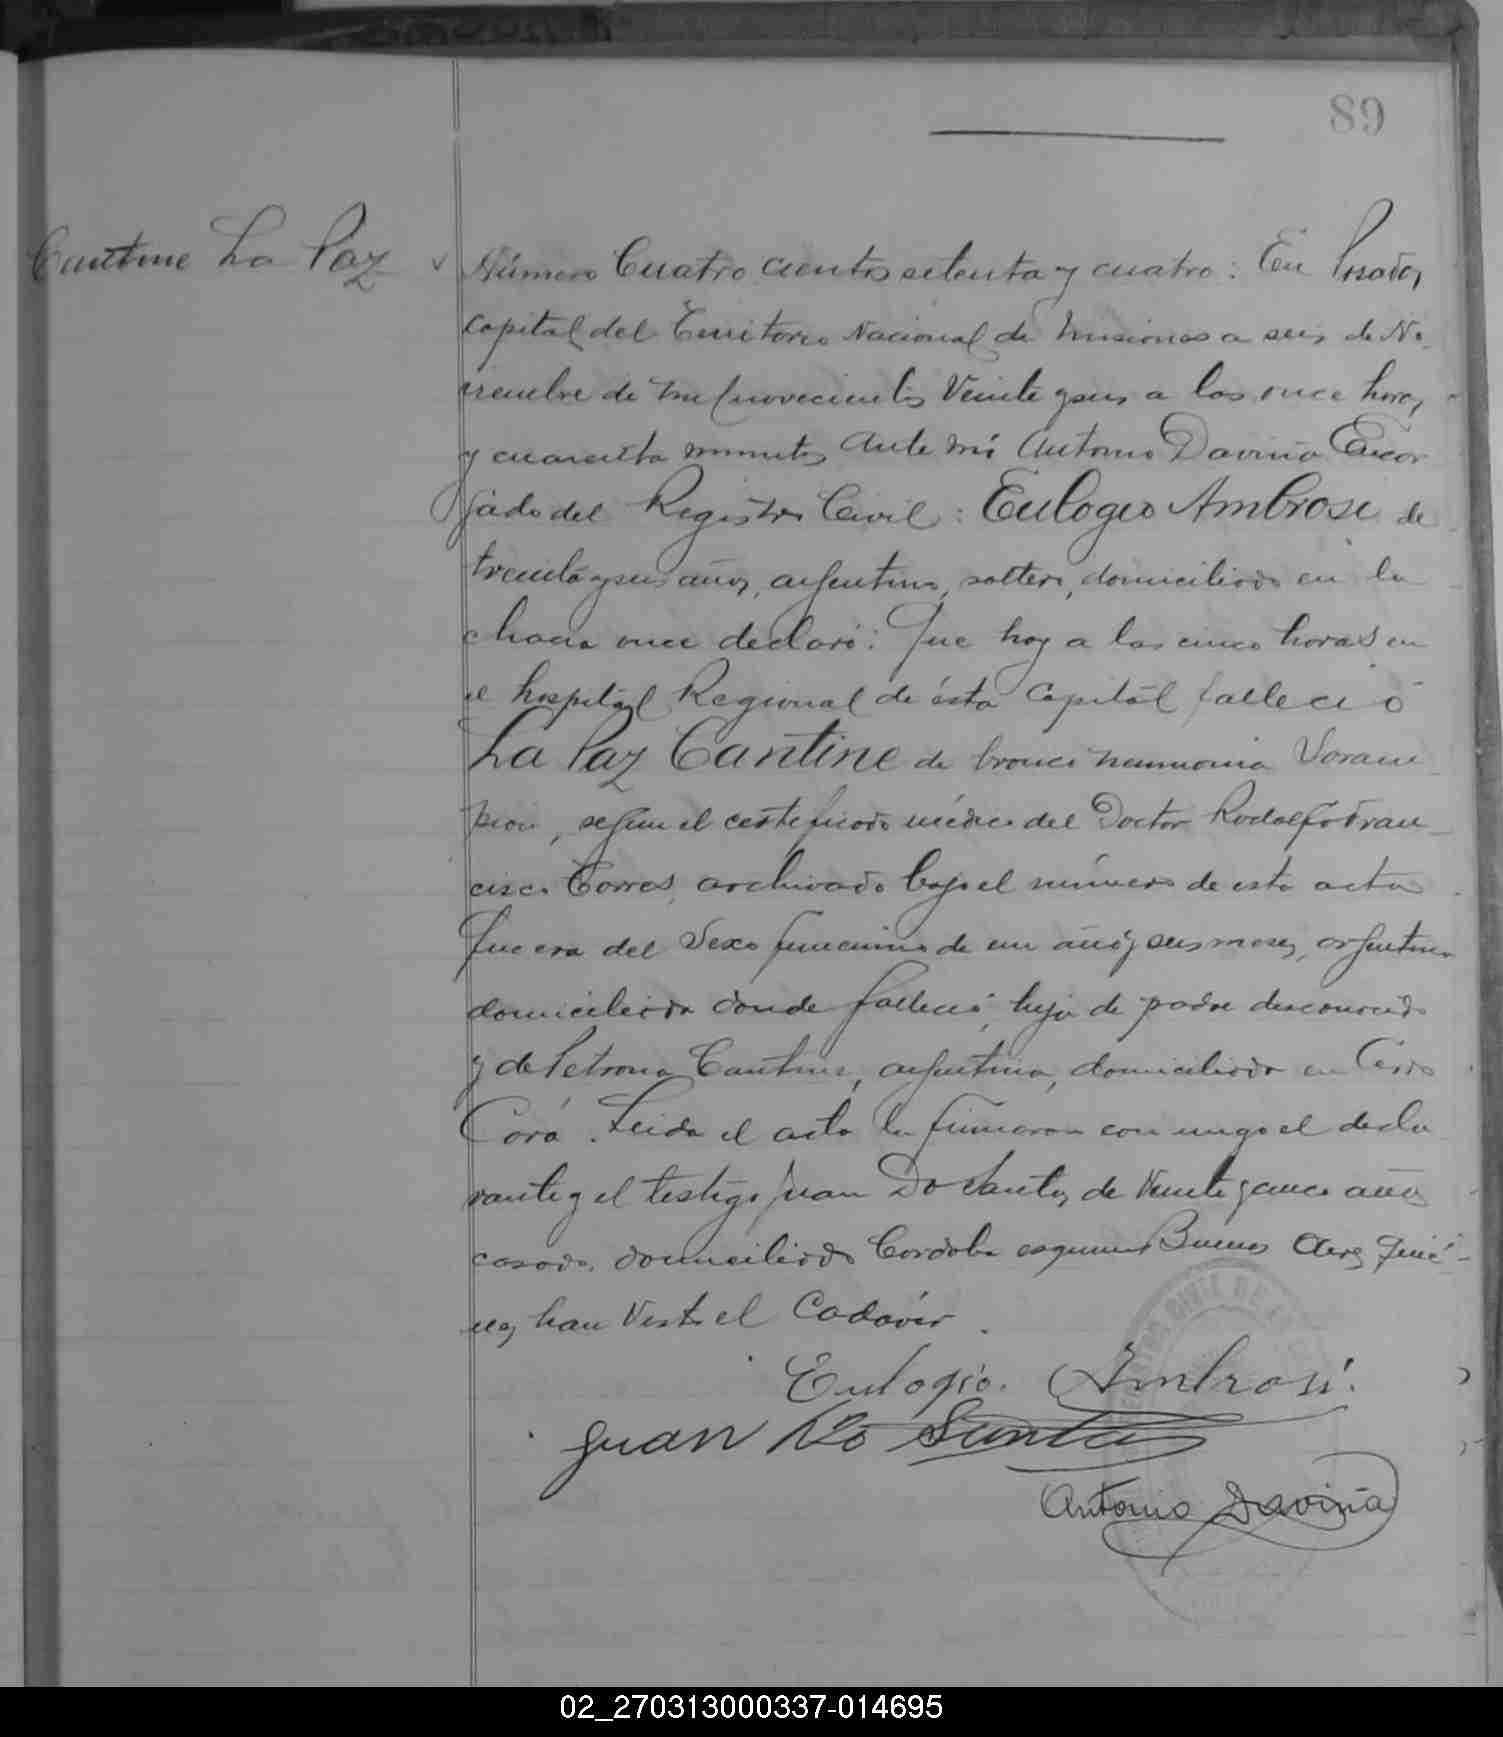 89
Cantine La Paz
Número Cuatro cientos setenta y cuatro: En Posadas,
capital del Territorio Nacional de Misiones a seis de No-
viembre de mil novecientos Veinte y seis a las once horas
y cuarenta minutos Ante mí Antonio Daviña Encar
gado del Registro Civil: Eulogio Ambrosi de
treinta y seis años, argentino, soltero, domiciliado en la
chacra once declaró: Que hoy a las cinco horas en
el hospital Regional de ésta Capital falleció
La Paz Cantine de bronco neumonia Saram-
pion, segun el certificado médico del Doctor Rodolfo Fran-
cisco Torres, archivado bajo el número de esta acta
Que era del Sexo femenino de un año y seis meses, argentina
domiciliada donde falleció, hija de padre desconocido
y de Petrona Cantine, argentina, domiciliada en Cerro
Corá. Leida el acta la firmaron conmigo el decla
rante y el testigo Juan Do Santos, de Veinte y cinco años
casado, domiciliado Cordoba esquina Buenos Aires Quié-
nes han Visto el Cadáver.
Eulogio. Ambrosi.
Juan Do Santos
Antonio Daviña
02_270313000337-014695